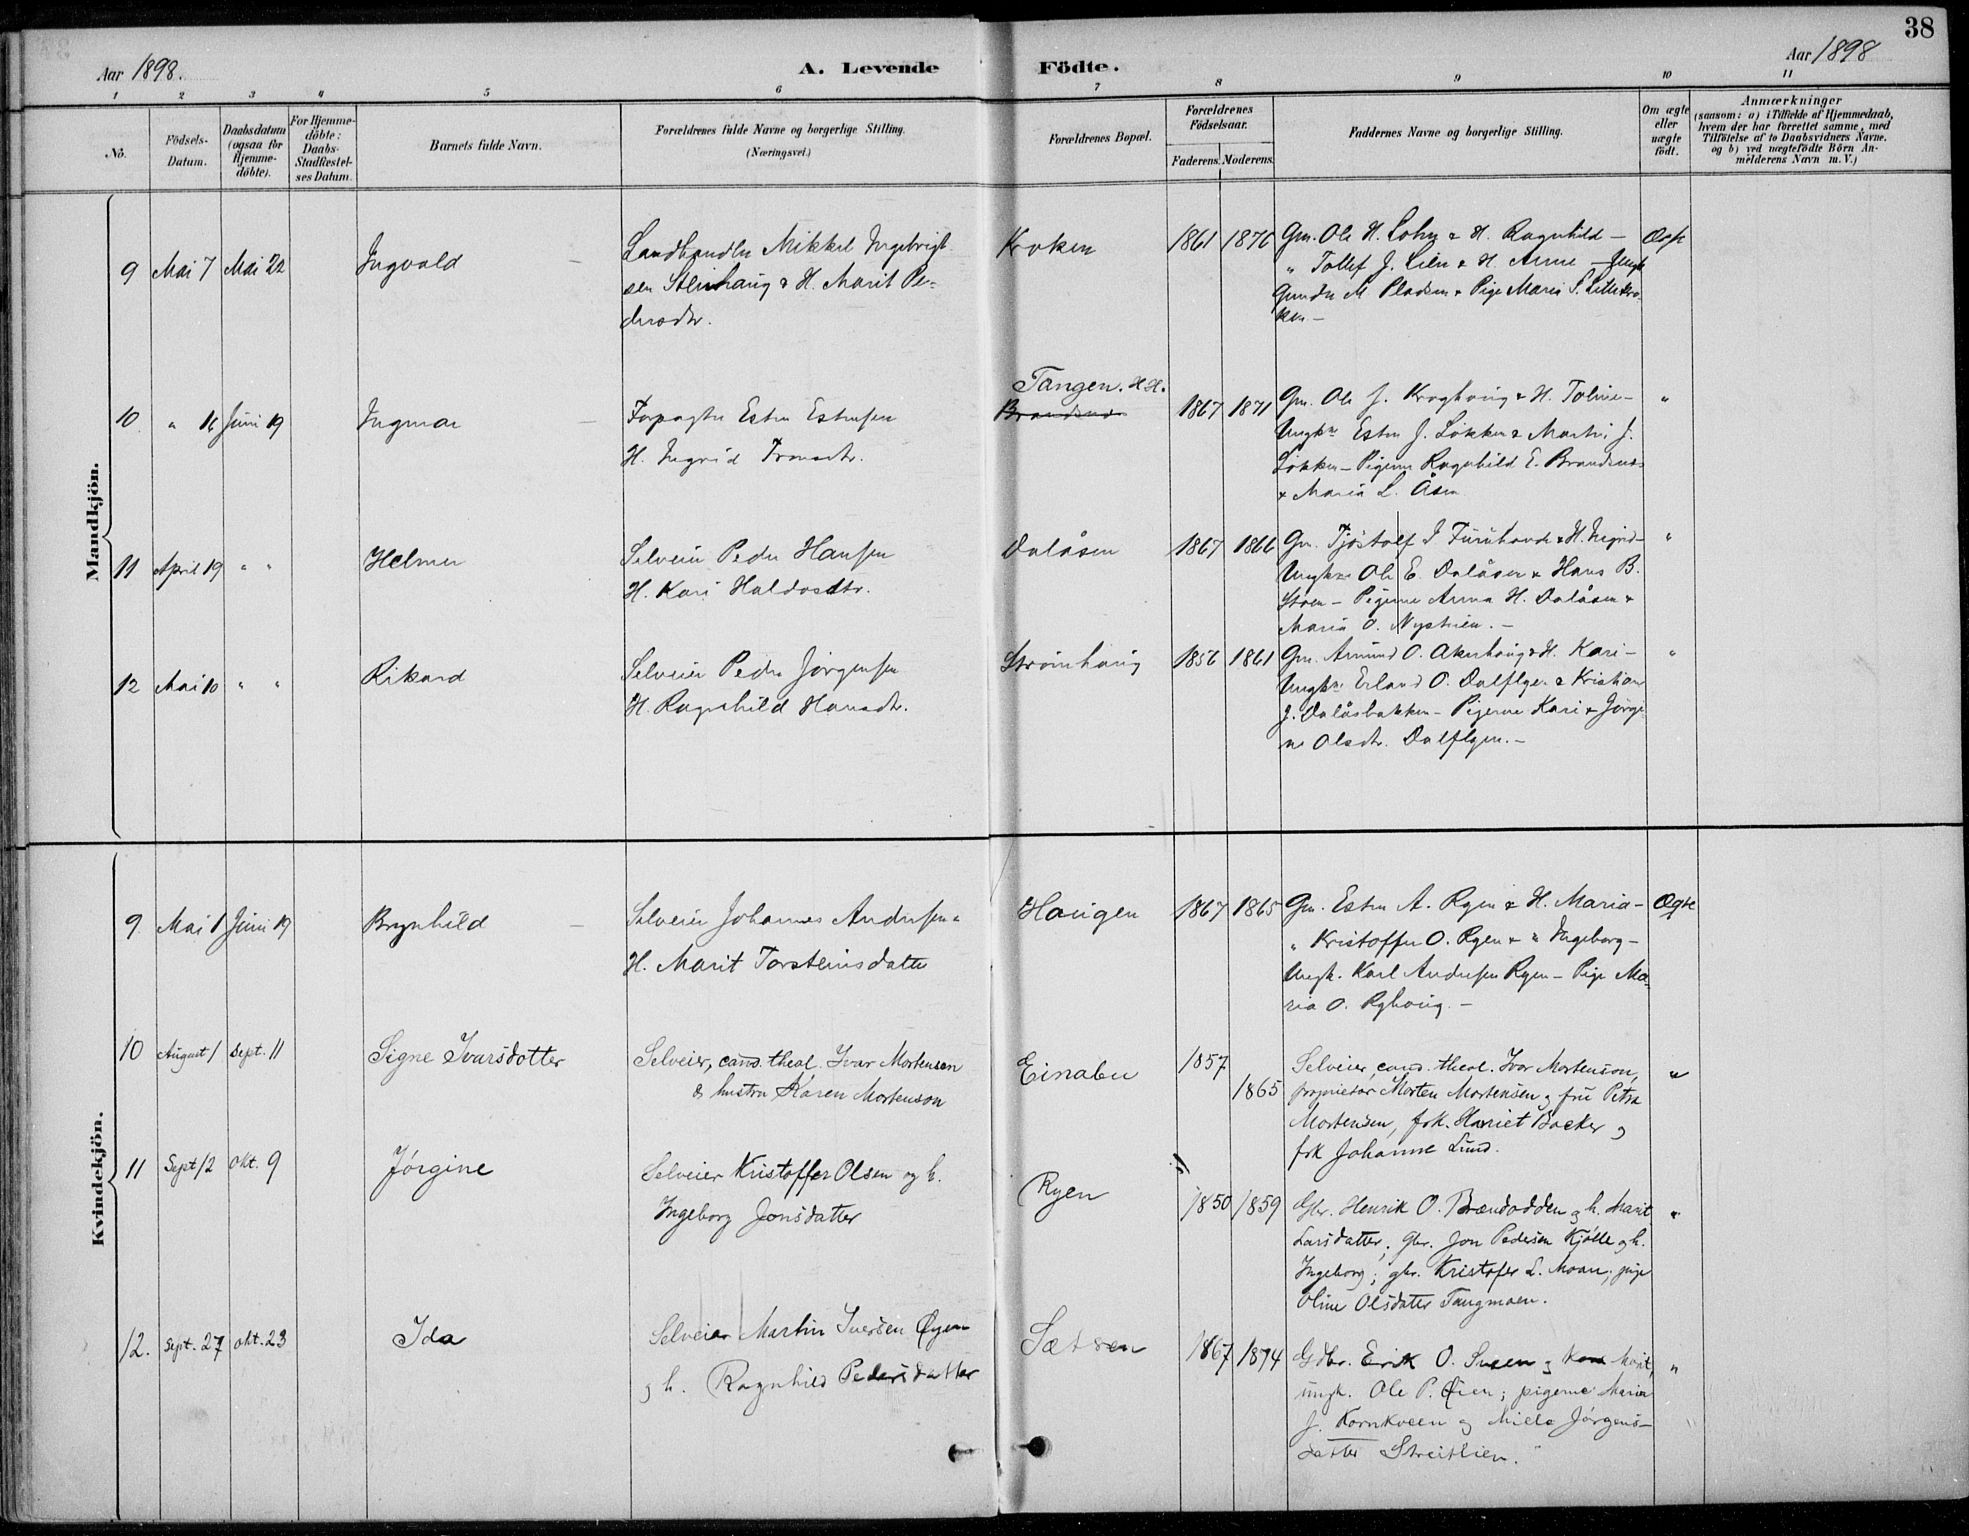 38
Aar 1898.
A. Levende Födte.
Aar 1898
1 2 3 4 5 6 7 8 9 10 11
No.
Födsels-Datum.
Daabsdatum (ogsaa for Hjemme-döbte).
For Hjemme-döbte: Daabs-Stadfæstel-ses Datum.
Barnets fulde Navn.
Forældrenes fulde Navne og borgerlige Stilling.
(Næringsvei.)
Forældrenes Bopæl.
Forældrenes Födselsaar.
Faderens. Moderens.
Faddernes Navne og borgerlige Stilling.
Om ægte eller uægte födt.
Anmærkninger
(saasom: a) i Tilfælde af Hjemmedaab, hvem der har forrettet samme, med Tilföielse af to Daabsvidners Navne, og b) ved uægtefödte Börn An-melderens Navn m. V.)
Mandkjön.
9 Mai 7 Mai 22 Ingvald
Landhandler Mikkel Ingebrigt-
sen Steinhaug & H. Marit Pe-
dersdtr.
Kroken 1861 1876
Gm. Ole H. Lohn & H. Ragnhild -
" Tollef J. Lien & H. Anne -
M Pladsen & Pige Maria S. Lillekro-
ken -
Ægte
10. " 16 Juni 19 Ingmar
Forpagter Esten Estensen
H. Ingrid
Tangen. H.H.
Brandsnes
1867 1871
Gm. Ole J. Kroghaug & H. Toline -
Ungkm Esten J. Løkken & Martin J.
Løkken - Pigerne Ragnhild E. Brandsnes
& Maria L. Åsen
"
11 April 19 " " Helmer
Selveier Peder Hansen
H. Kari Haldosdtr.
Dalåsen 1867 1866
Gm. Tjøstolf I Furuhovde & H. Ingrid -
Ungkm Ole E. Dalåsen & Hans B.
Støen - Pigerne Anna H. Dalåsen &
Maria O. Nystuen. -
"
12 Mai 10 " " Rikard
Selveier Peder Jørgensen
H. Ragnhild Hansdtr.
Strømhaug 1856 1861
Gm. Amund O. Akerhaug & H. Kari -
Ungkm Erland O. Dalflyen & Kristian
J. Dalåsbakken - Pigerne Kari & Jørgi-
ne Olsdtr. Dalflyen. -
"
Kvindekjön.
9. Mai 1 Juni 19 Brynhild
Selveier Johannes Andersen &
H. Marit Torsteinsdatter
Haugen 1867 1865
Gm. Esten A. Ryen & H. Maria -
" Kristoffer O. Ryen & " Ingeborg -
Ungk. Karl Andersen Ryen - Pige Ma-
ria O. Ryhaug. -
Ægte
10 August 1 Sept. 11 Signe Ivarsdotter
Selveier, cand. theol. Ivar Mortenson
& hustru Karen Mortenson
Einabu 1857 1865
Selveier, cand. theol. Ivar Mortenson,
proprietær Morten Mortensen og fru Petra
Mortensen, frk. Harriet Backer og
frk Johanne Lund.
"
11 Sept 12 Okt. 9 Jørgine
Selveier Kristoffer Olsen og h.
Ingeborg Jonsdatter
Ryen 1850 1859
Gbr. Henrik O. Brændodden og h. Marit
Larsdatter; gbr. Jon Pedersen Kjølle og h.
Ingeborg; gbr. Kristofer L. Moan; pige
Oline Olsdatter Tangmoen.
"
12. Sept. 27 Okt. 23 Ida
Selveier Martin Iversen Øyen
og h. Ragnhild Pedersdatter
Sætren 1867 1874
Gdbr. Erik O. Sveen og Marit,
ungk. Ole P. Øien; pigerne Maria
J. Kornkveen og Miele Jørgens-
datter Streitlien.
"